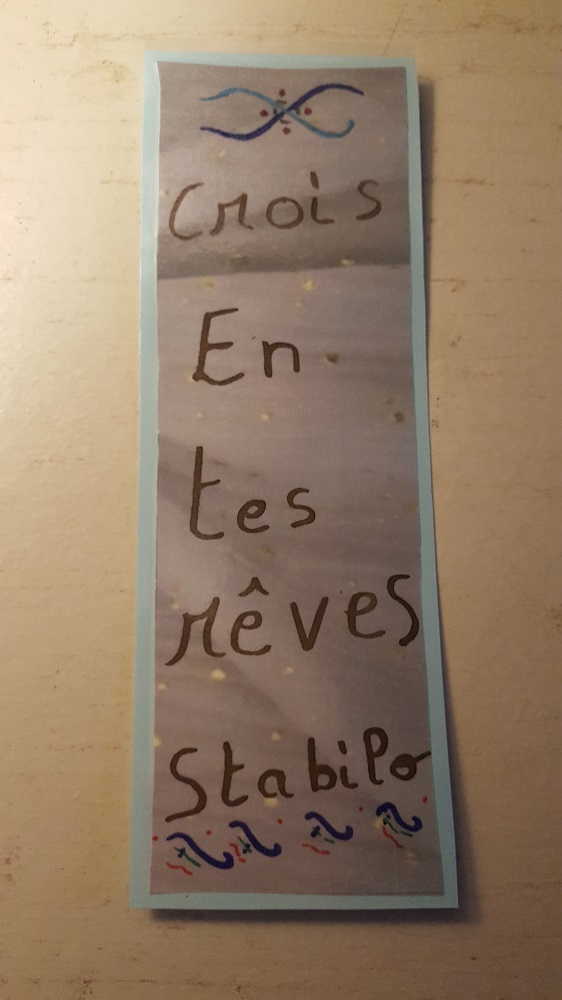 Crois
En
tes
rêves
Stabilo